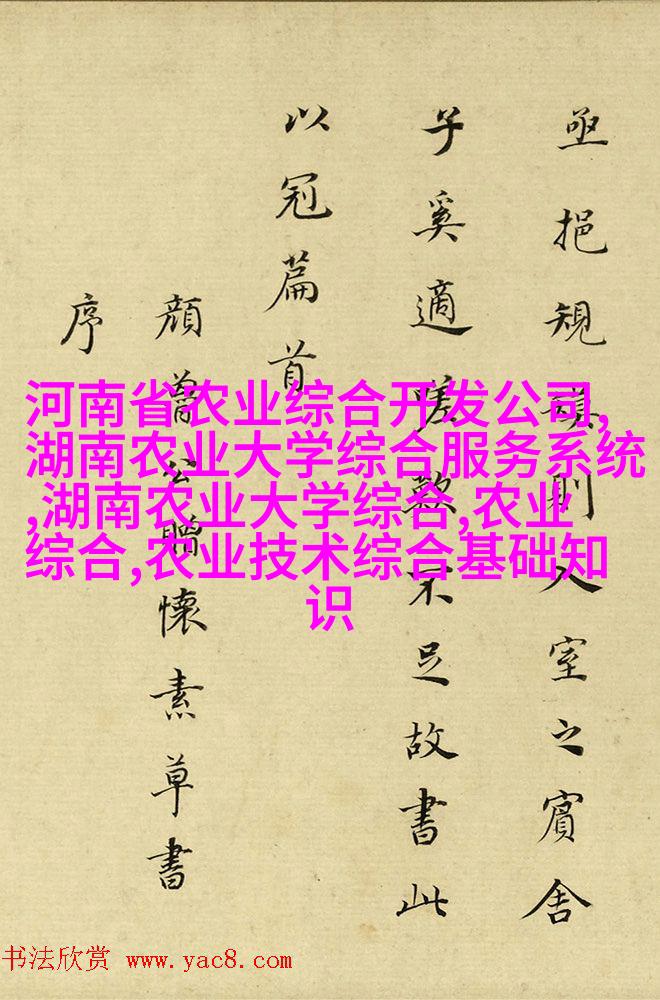 亟挹規模則入室之賓舍
子奚適嗟歎不足故書此
以冠篇首
顏魯公贈懷素草書
序
河南省农业综合开发公司,
湖南农业大学综合服务系统
,湖南农业大学综合,农业
综合,农业技术综合基础知
识
书法欣赏 www.yac8.com